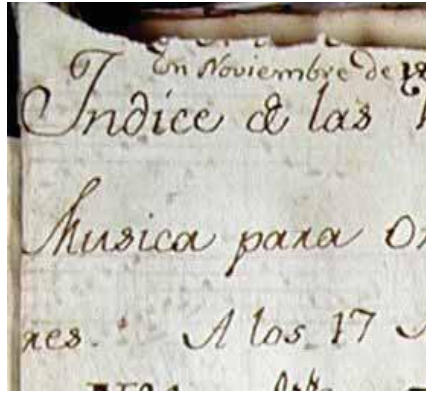 en Noviembre de 18
Indice de las
Musica para O
res. A los 17